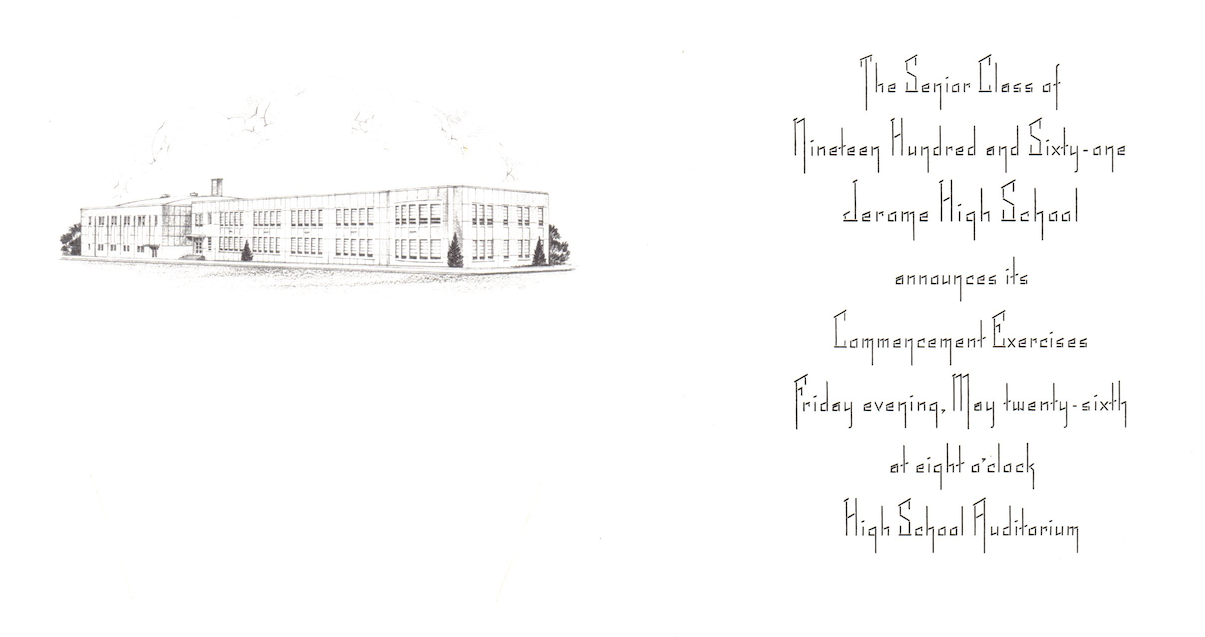 The Senior Class of
Nineteen Hundred and Sixty-one
Jerome High School
announces its
Commencement Exercises
Friday evening, May twenty-sixth
at eight o'clock
High School Auditorium